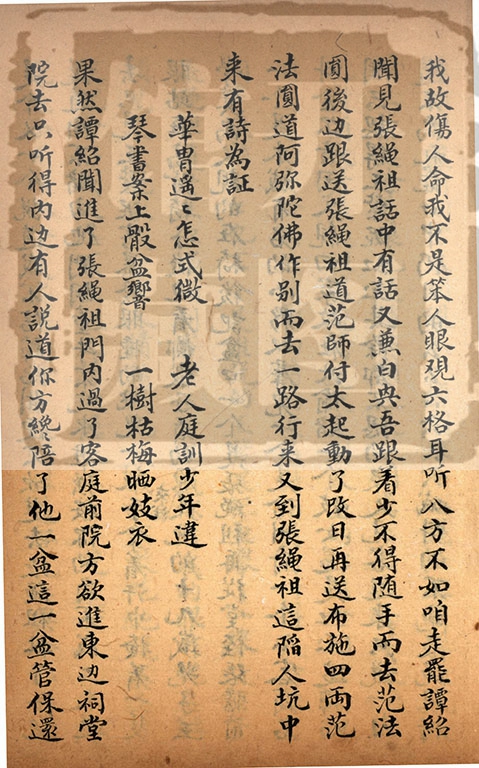 我故傷人命我不是笨人眼观六格耳听八方不如咱走罷譚紹
聞見張䋲祖話中有話又兼白興吾跟着少不得随手而去范法
圎後边跟送張䋲祖道范師付太起動了改日再送布施四両范
法圎道阿弥陀佛作别而去一路行来又到張䋲祖這陷人坑中
来有詩為証
華胄遥〻怎式微 老人庭訓少年違
琴書案上骰盆響 一樹枯梅晒妓衣
果然譚紹聞進了張䋲祖門内過了客庭前院方欲進東边祠堂
院去只听得内边有人説道你方纔陪了他一盆這一盆管保還